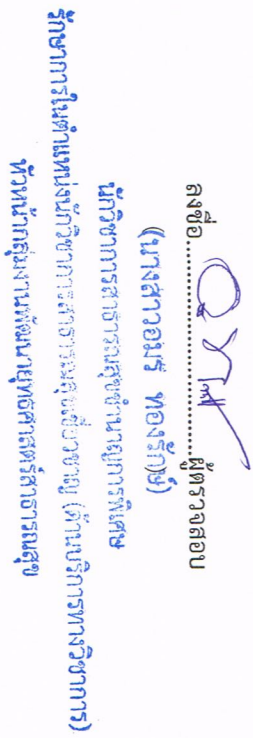 ลงชื่อ.............................ผู้ตรวจสอบ
(นางสาวอมร ทองรักษ์)
นักวิชาการสาธารณสุขชำนาญการพิเศษ
รักษาการในตำแหน่งนักวิชาการสาธารณสุขเชี่ยวชาญ (ด้านบริการทางวิชาการ)
หัวหน้ากลุ่มงานพัฒนายุทธศาสตร์สาธารณสุข